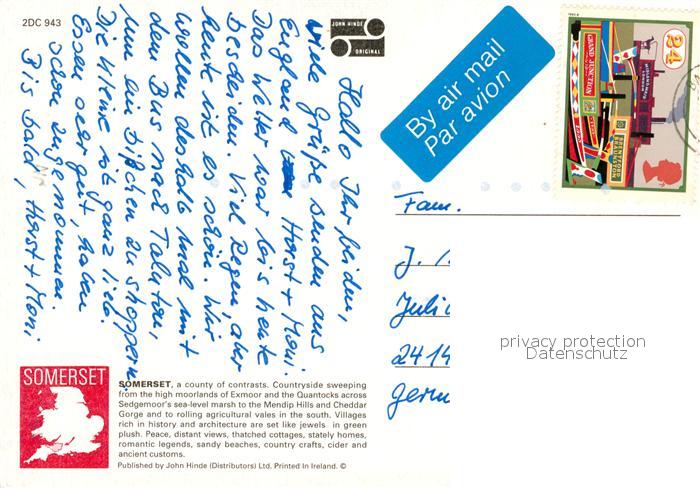 2DC 943
JOHN HINDE
ORIGINAL
Hallo Ihr beiden,
viele Grüße senden aus
England Horst + Moni.
Das Wetter war bis heute
bescheiden. Viel Regen, aber
heute ist es schön. Wir
wollen deshalb mal mit
den Bus nach Taunton,
um ein bißchen zu shoppern.
Die Kleine ist ganz lieb.
Essen sehr gut, haben
schon zugenommen.
Bis bald, Horst + Moni
By air mail
Par avion
34
GRAND JUNCTION
Fam.
J.
2414
Germ
privacy protection
Datenschutz
SOMERSET
SOMERSET, a county of contrasts. Countryside sweeping
from the high moorlands of Exmoor and the Quantocks across
Sedgemoor's sea-level marsh to the Mendip Hills and Cheddar
Gorge and to rolling agricultural vales in the south. Villages
rich in history and architecture are set like jewels in green
plush. Peace, distant views, thatched cottages, stately homes,
romantic legends, sandy beaches, country crafts, cider and
ancient customs.
Published by John Hinde (Distributors) Ltd. Printed In Ireland. ©